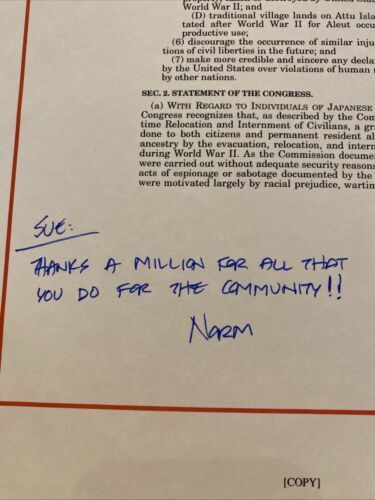 World War II; and
(D) traditional village lands on Attu Isla
tated after World War II for Aleut occu
productive use;
(6) discourage the occurrence of similar inju
tions of civil liberties in the future; and
(7) make more credible and sincere any decla
by the United States over violations of human
by other nations.
SEC. 2. STATEMENT OF THE CONGRESS.
(a) WITH REGARD TO INDIVIDUALS OF JAPANESE
Congress recognizes that, as described by the Com
time Relocation and Internment of Civilians, a gra
done to both citizens and permanent resident al
ancestry by the evacuation, relocation, and intern
during World War II. As the Commission docume
were carried out without adequate security reasons
acts of espionage or sabotage documented by the
were motivated largely by racial prejudice, wartim
SUE:
THANKS A MILLION FOR ALL THAT
YOU DO FOR THE COMMUNITY!!
NORM
[COPY]